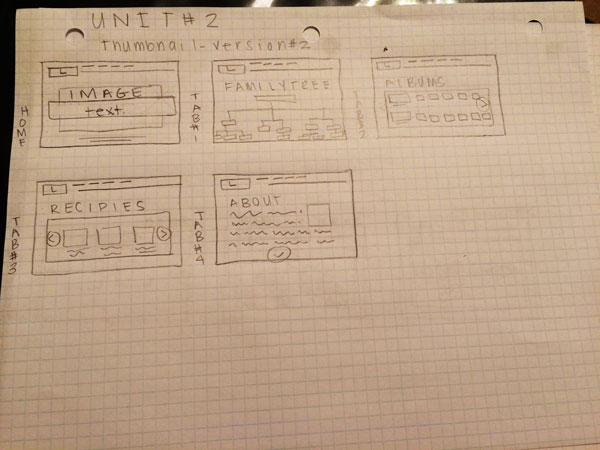 UNIT#2
thumbnail-version#2
HOME
L
IMAGE
text.
TAB#1
L
FAMILYTREE
TAB#2
L
ALBUMS
TAB#3
L
RECIPIES
TAB#4
L
ABOUT